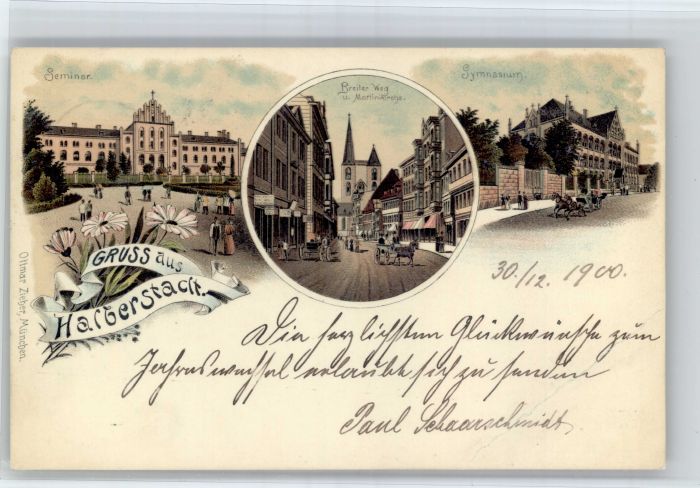 Seminar.
Breiter Weg
u. Martinikirche.
Gymnasium.
GRUSS aus
Halberstadt.
Ottmar Zieher, München.
30./12. 1900.
Die herzlichsten Glückwünsche zum
Jahreswechsel erlaubt sich zu senden
Paul Schaarschmidt.